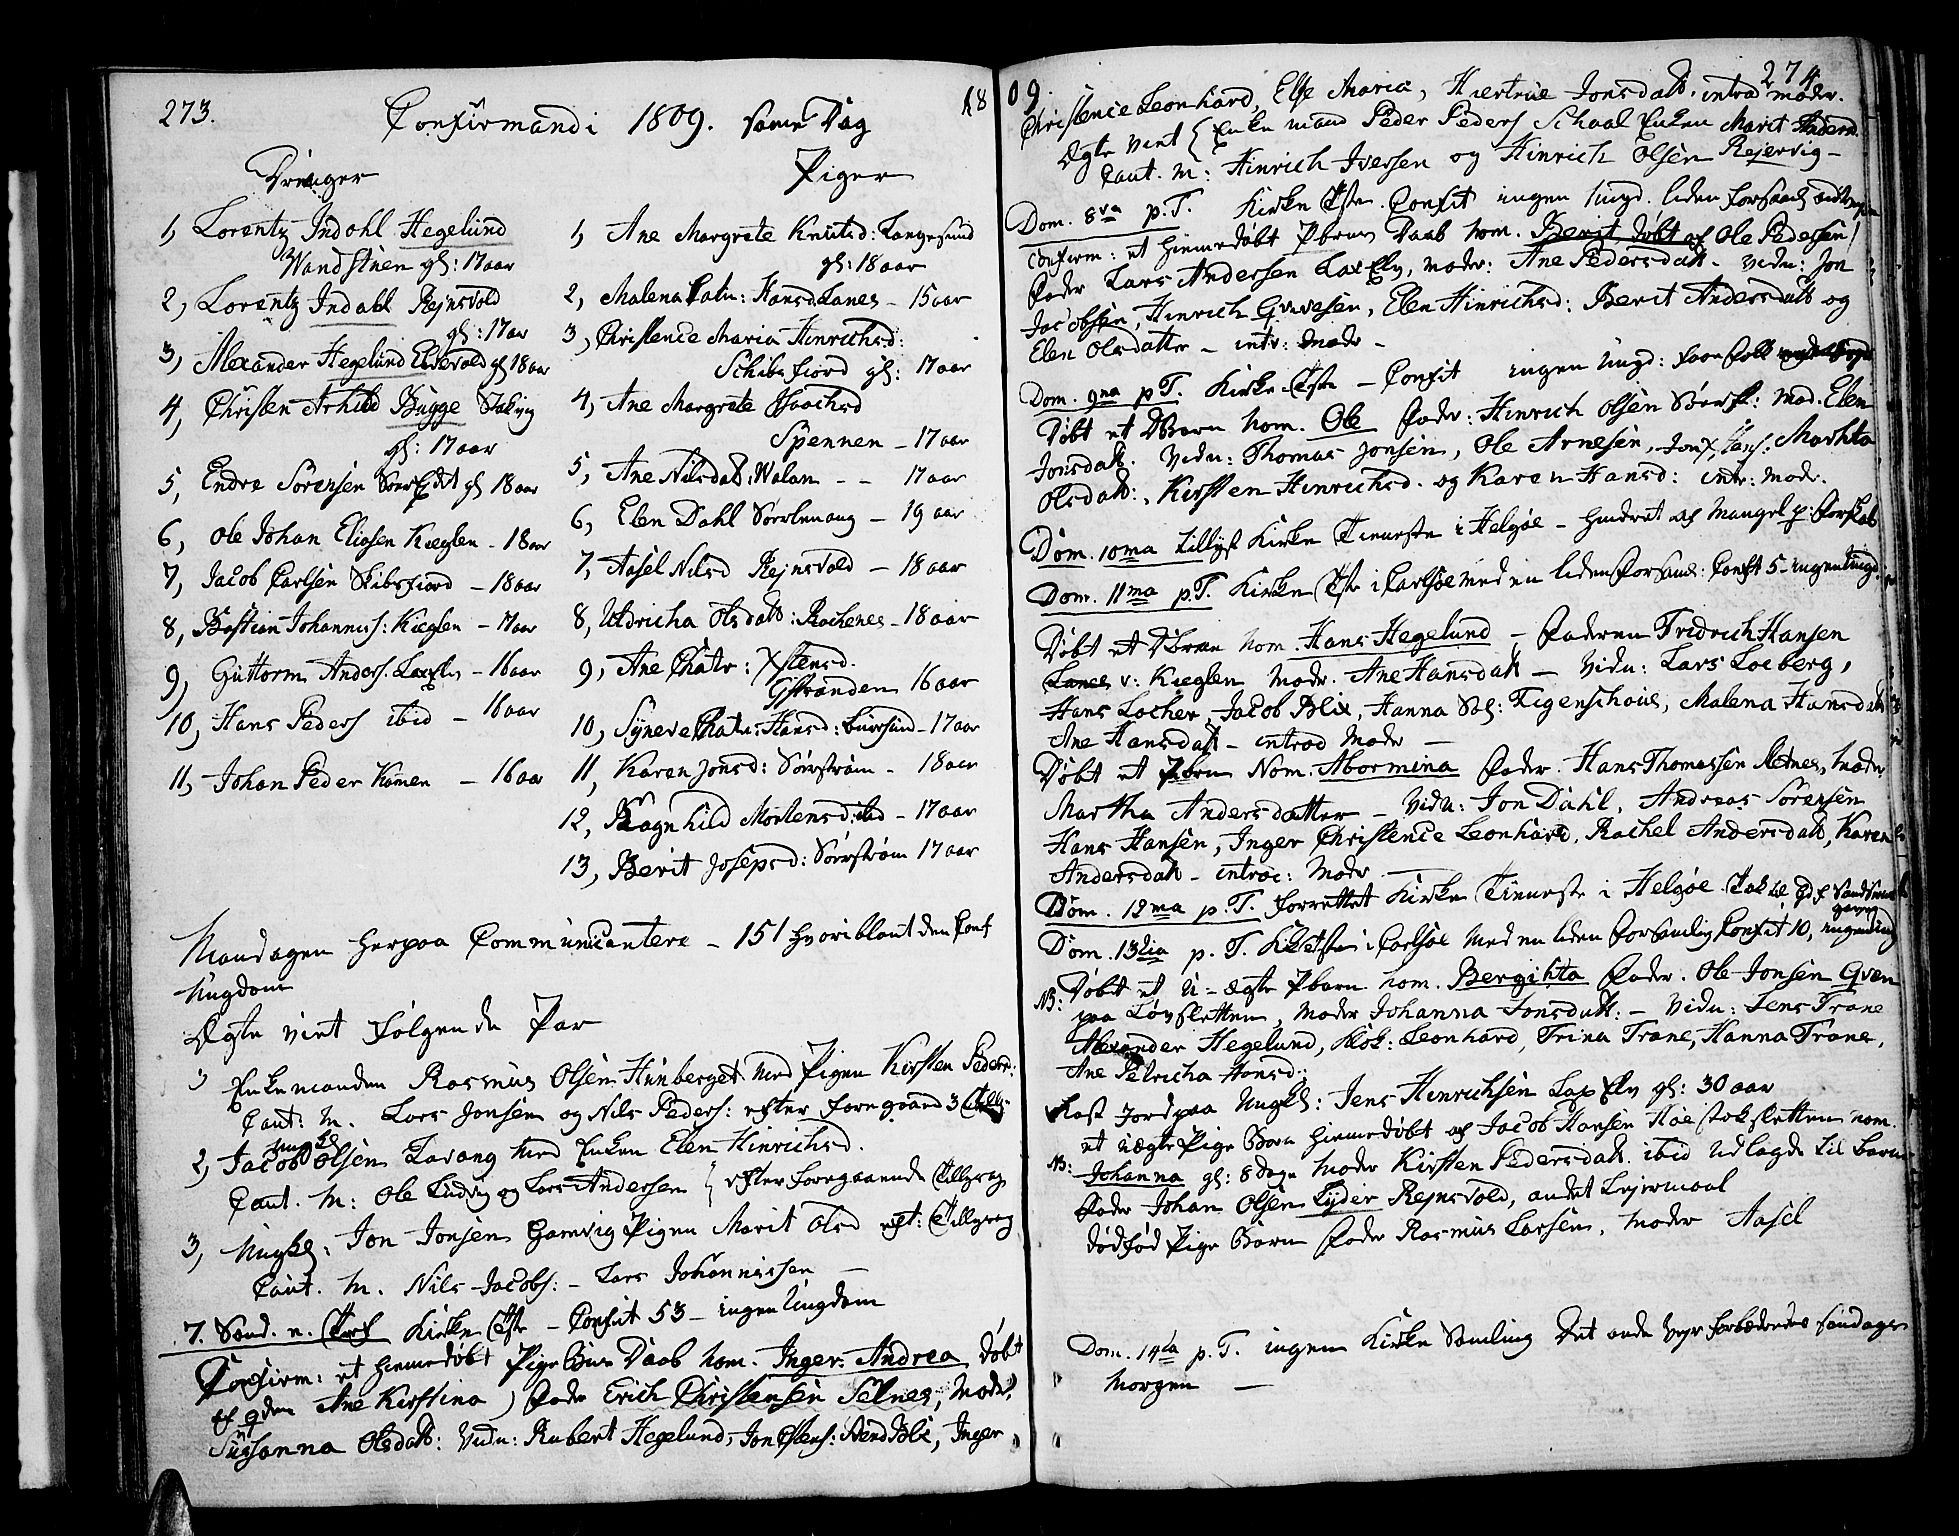 273.
Confirmandi 1809. same Dag
18
Drenger
Piger
1, Lorentz Indahl Hegelund
Wandstuen gl: 17 aar
2, Lorentz Indahl Rejnsvold
gl: 17 aar
3, Alexander Hegelund Eidevold gl 18 aar
4, Christen Arhild Bugge Staking
gl: 17 aar
5, Endre Sörensen gl 18 aar
6, Ole Johan Eliasen Kieglen - 18 aar
7, Jacob Carlsen Skibsfiord - 18 aar
8, Bastian Johannis: Kieglen - 17 aar
9, Guttorm Anders. LaxElv - 16 aar
10, Hans Peders ibid - 16 aar
11, Johan Peder Kamen - 16 aar
1, Ane Margrete Knutsd: Langesund
gl: 18 aar
2, Malena Catr: Hansd. Lanes - 15 aar
3, Christence Maria Hinrichsd:
Schibsfiord gl: 17 aar
4, Ane Margrete Isaachsd
Spennen - 17 aar
5, Ane Nilsdatt: Walan - - 17 aar
6, Elen Dahl Sörlenang - 19 aar
7, Aasel Nilsd Rejnsvold - 18 aar
8, Uldricha Olsdatt: Rochenes - 18 aar
9, Ane Chatr: Xstensd.
Gstranden 16 aar
10, Synneve Chatr: Hansd: BurSund - 17 aar
11, Karen Jonsd: Sörström - 18 aar
12, Ragnhild Mortensd: ibd - 17 aar
13, Berit Josepsd: Sörström 17 aar
Mandagen herpaa Communicantere - 151 hvoriblant den Conf
Ungdom
Ægte viet følgende Par
1, Enkemanden Rasmus Olsen Hunberget med Pigen Kirsten Pedersd:
Caut: M. Lars Jonsen og Nils Peders: efter foregaaend 3
Ungkl
2, Jacob Olsen Lavang med Enken Elen Hinrichsd.
Caut. M: Ole Ludvig og Lars Andersen efter foregaaende Tillysng
3, Ungkl: Jon Jonsen Gamvig Pigen Marit Olsd eft: Tillysng
Caut. M. Nils Jacobs: - Lars Johannissen —
7. Sønd. n. Kirke Tieste - Confit 53 - ingen Ungdom
Confirm: et hiemedøbt Pige Børns Daab nom. Inger Andrea døbt
af Ane Kirstina ) Fader Erich Christensen Selnes, Moder
Susanna Olsdatt: Vidn: Rubert Hegelund, Inger
09.
274.
Christence Leonhard, Else Maria, Hiertrue Jonsdatt. introd moder.
Ægte viet Enkemand Peder Peders Schaal Enken Marit Andersd.
Caut. M: Hinrich Iversen og Hinrich Olsen Rejervig -
Dom. 8va p. T. Kirke Tieste. Confit ingen Ungd. liden forsaml
Confirm: et hiemedøbt Pbarns Daab nom. Berit døbt af Ole Pedersen
Fader Lars Andersen LaxElv, moder: Ane Pedersdatt - vidn: Jon
Jacobsen, Hinrich Gunesen, Elen Hinrichsd: Berit Andersdatt og
Elen Olsdatter - intr: moder -
Dom. 9na p T. Kirke Tieste - Confit ingen Ungd: faae folk
Døbt et DBarn nom. Ole Fader: Hinrich Olsen Mod. Elen
Jonsdatt. Vidn: Thomas Jonsen, Ole Arnesen, Markta
Olsdatt:, Kirsten Hinrichsd. og Karen Hansd: intr: Moder.
Dom. 10ma tillyst Kirke Tieneste i Helgøe - hindret af Mangel p: Forskab
Dom. 11ma p. T. Kirke Tieste i Carlsøe med en liden Forsaml: Confit 5 - ingen Ungd
Døbt et Dbarn nom. Hans Hegelund - Faderen Fridrich Hansen
v: Kieglen Moder. Ane Hansdatt - Vidn: Lars Loeberg,
Hans Locher, Jacob Blix, Hanna Eigenschoue, Malena Hansdatt
Ane Hansdatt - introd Moder —
Døbt et Pbrn Nom. Abormina Fader. Hans Thomassen Moder
Martha Andersdatter - Vidn: Jon Dahl, Andreas Sörensen
Hans Hansen, Inger Christence Leonhard, Rachel Andersdatt, Karen
Andersdatt - introd: Moder —
Dom. 12ma p. T. forrettet Kirke Tieneste i Helgøe
Dom. 13tia p. T. Kirke Tieste i Carlsøe med en liden Forsamlig Confit 10, ingen Ungd
NB: Døbt et U-ægte Pbarn nom. Bergihta Fader. Ole Jonsen Qven
paa Løvsletten, Moder Johanna Jonsdatt: - Vidn: Jens Trane
Alexander Hegelund, Leonhard, Trina Trane, Hanna Trane,
Ane Petricha Hansd:
Kast Jord paa Ungkl: Jens Hinrichsen LaxElv gl: 30 aar
et uægte Pige Barn hiemedøbt af Jacob Hansen nom.
NB: Johanna gl: 8 dage Moder Kirsten Pedersdatt ibid Udlagde til Barne
Fader Johan Olsen Lyder Rejnsvold, andet Lejermaal
dødfød Pige Barn Fader Rasmus Larsen, Moder Aasel
Dom. 14ta p. T. ingen Kirke Samling det onde Vejr forbødendes Søndagen
Morgen —